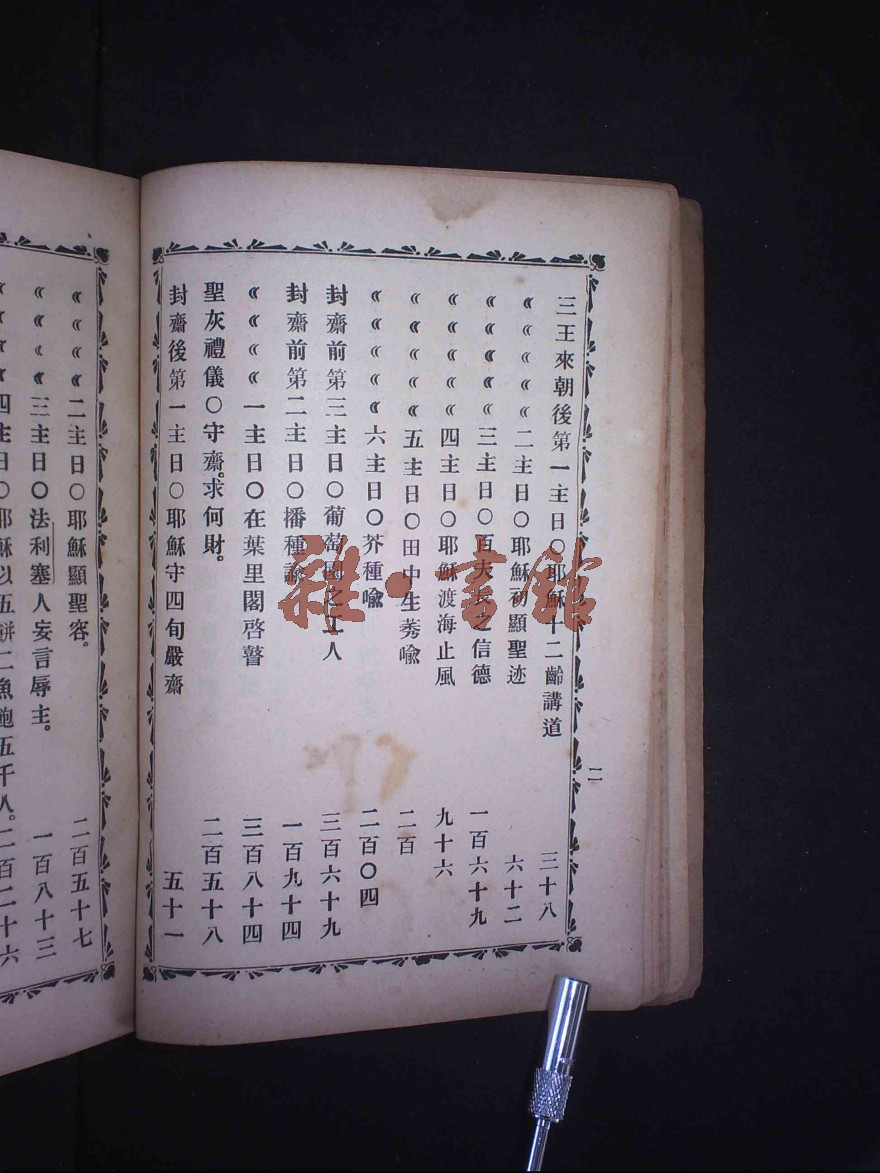 三王來朝後第一主日〇耶穌十二齡講道 三十八
〃〃〃〃二主日〇耶穌初顯聖迹 六十二
〃〃〃〃三主日〇百夫長之信德 一百六十九
〃〃〃〃四主日〇耶穌渡海止風 九十六
〃〃〃〃五主日〇田中生莠喩 二百
〃〃〃〃六主日〇芥種喩 二百〇四
封齋前第三主日〇葡萄園之工人 三百六十九
封齋前第二主日〇播種諭 一百九十四
〃〃〃〃一主日〇在葉里閣啓瞽 三百八十四
聖灰禮儀〇守齋。求何財。 二百五十八
封齋後第一主日〇耶穌守四旬嚴齋 五十一
二
〃〃〃〃二主日〇耶穌顯聖容。 二百五十七
〃〃〃〃三主日〇法利塞人妄言辱主。 一百八十三
〃〃〃〃四主日〇耶穌以五餅二魚飽五千人。二百二十六
雜·書館